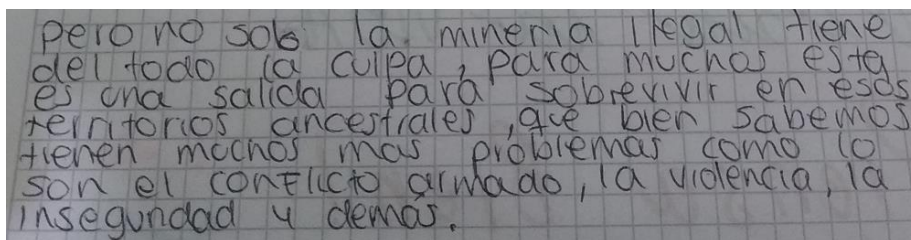 Pero no solo la mineria ilegal tiene
del todo la culpa, para muchos esta
es una salida para sobrevivir en esos
territorios ancestrales, que bien sabemos
tienen muchos mas problemas como lo
son el conflicto armado, la violencia, la
inseguridad y demás.